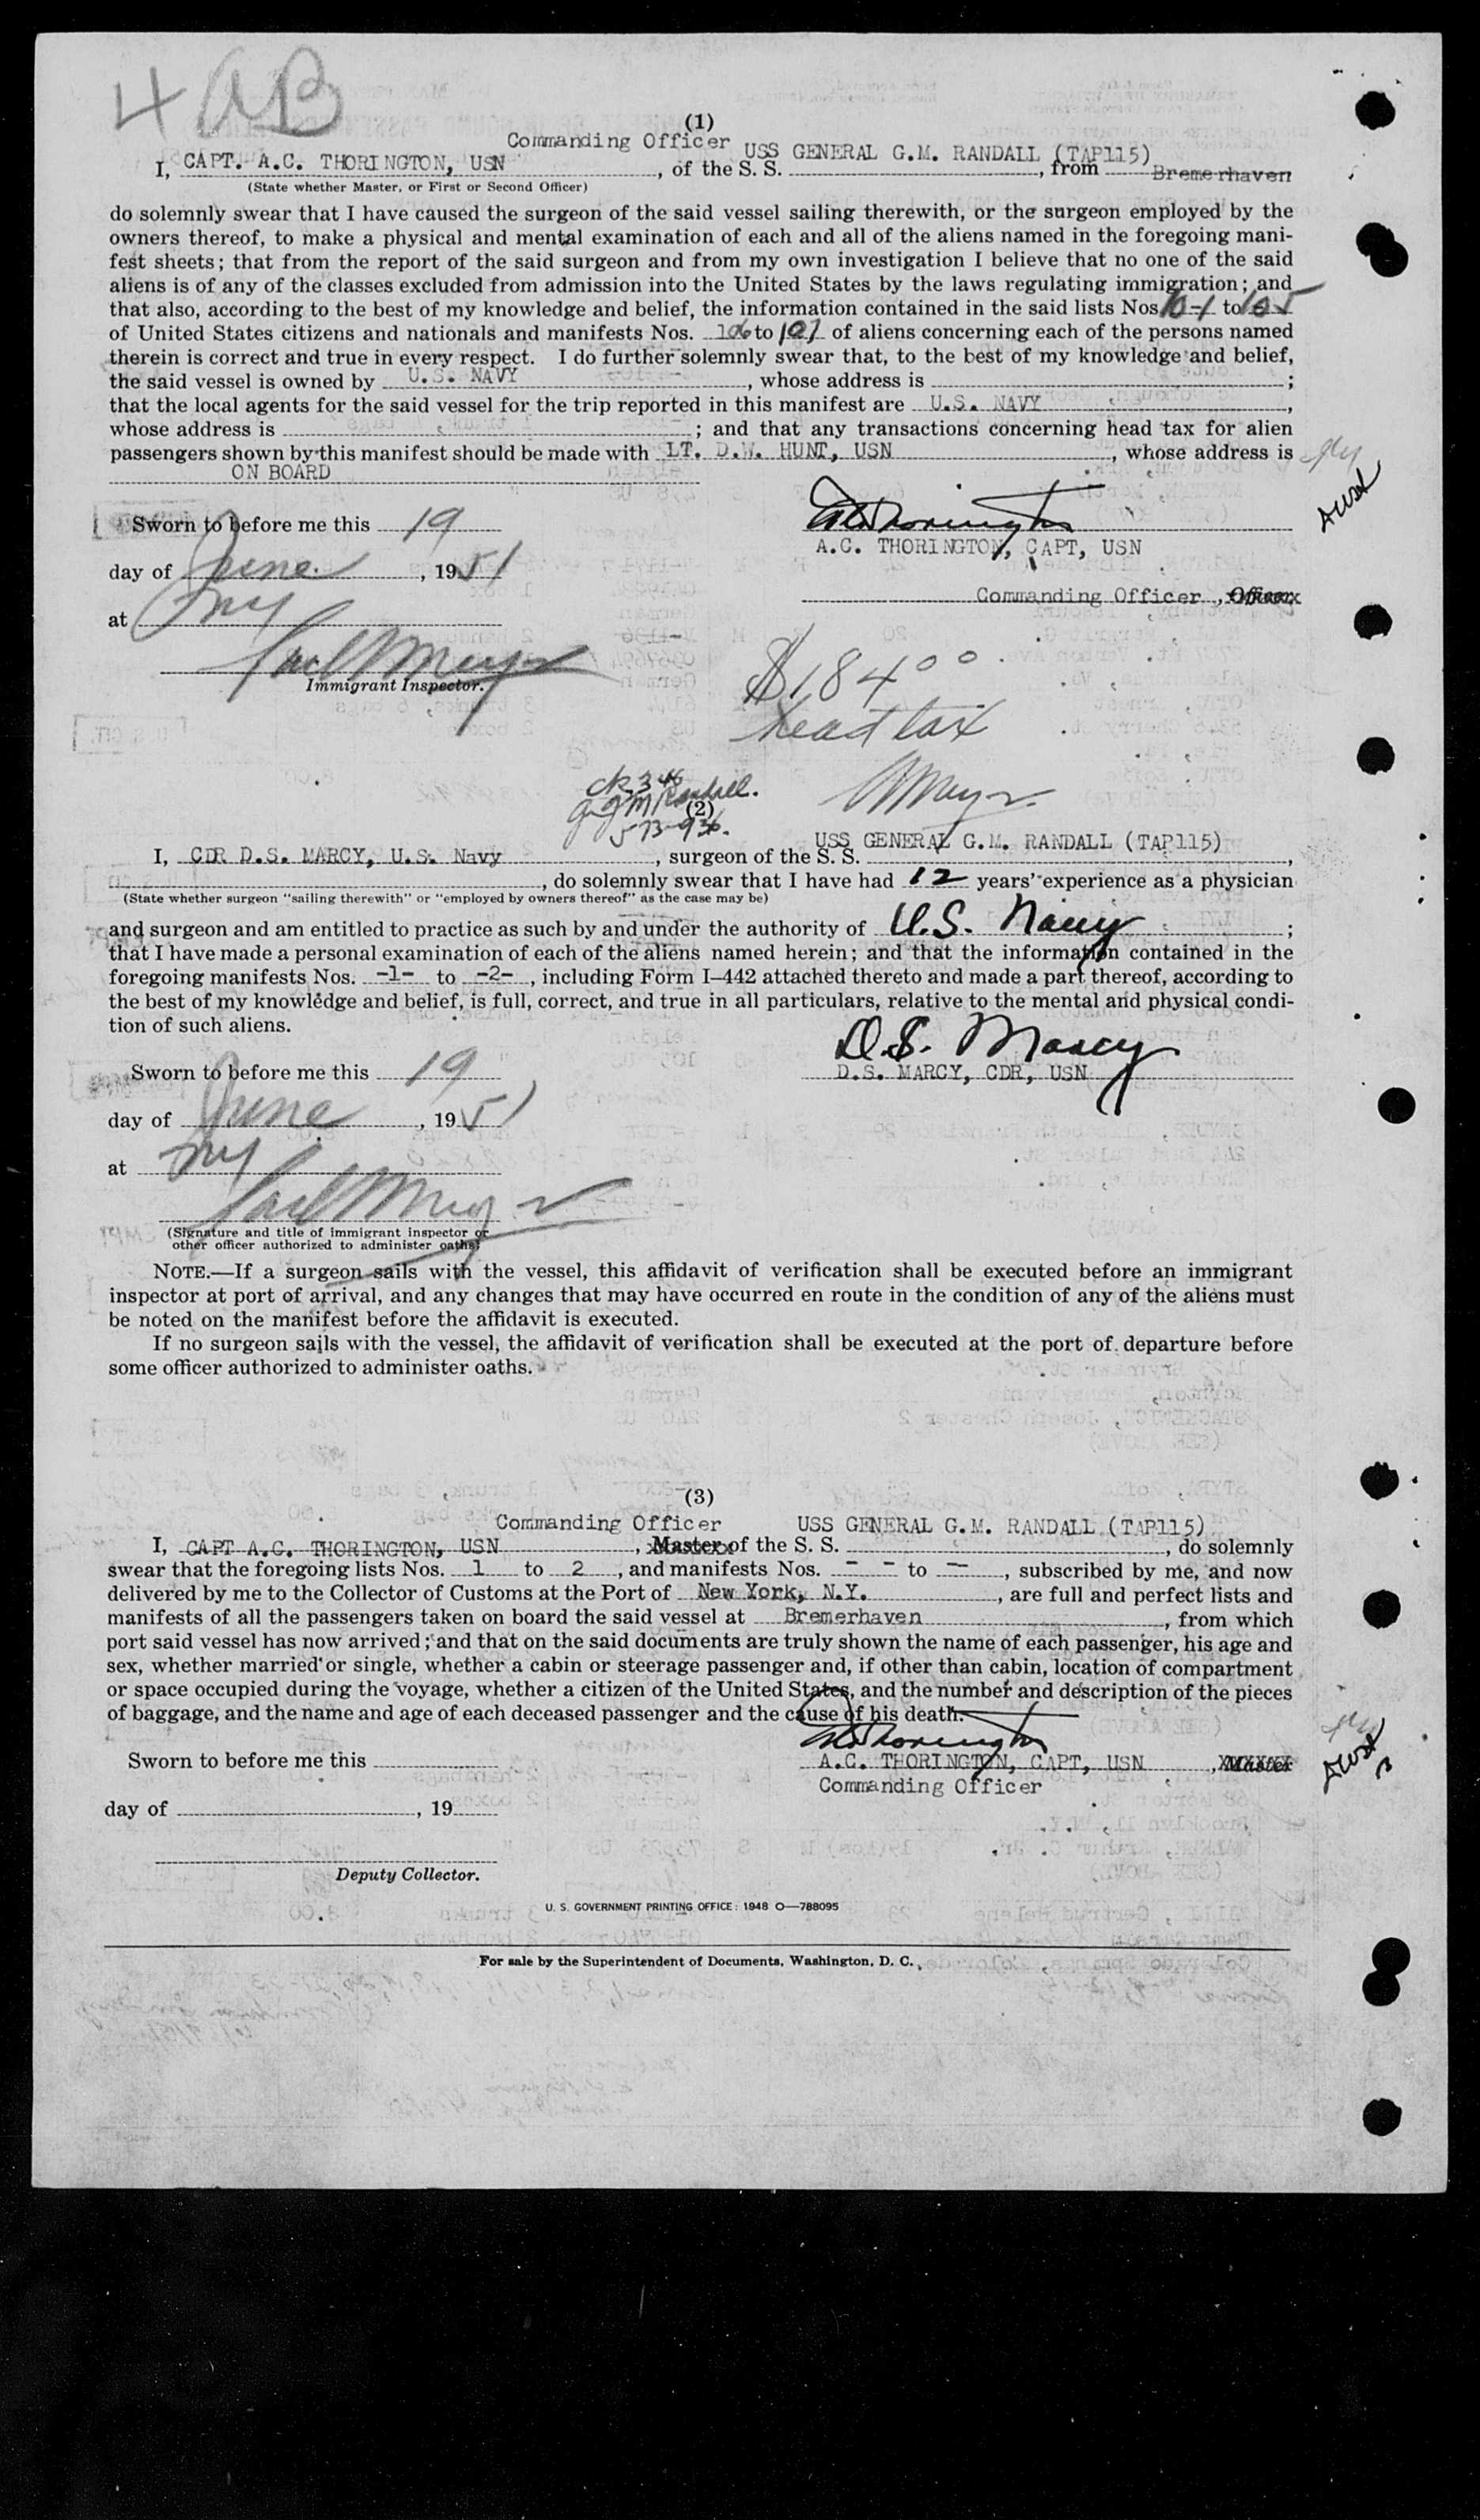 4 AB
(1)
Commanding Officer
I, CAPT. A.C. THORINGTON, USN, of the S. S. USS GENERAL G.M. RANDALL (TAP115), from Bremerhaven
(State whether Master, or First or Second Officer)
do solemnly swear that I have caused the surgeon of the said vessel sailing therewith, or the surgeon employed by the
owners thereof, to make a physical and mental examination of each and all of the aliens named in the foregoing mani-
fest sheets; that from the report of the said surgeon and from my own investigation I believe that no one of the said
aliens is of any of the classes excluded from admission into the United States by the laws regulating immigration; and
that also, according to the best of my knowledge and belief, the information contained in the said lists Nos. to
of United States citizens and nationals and manifests Nos. to of aliens concerning each of the persons named
therein is correct and true in every respect. I do further solemnly swear that, to the best of my knowledge and belief,
the said vessel is owned by U.S. NAVY, whose address is ;
that the local agents for the said vessel for the trip reported in this manifest are U.S. NAVY,
whose address is ; and that any transactions concerning head tax for alien
passengers shown by this manifest should be made with LT. D.W. HUNT, USN, whose address is
ON BOARD
Sworn to before me this 19
A.C. THORINGTON, CAPT, USN
day of June, 1951
Commanding Officer, Officer.
at NY
Immigrant Inspector.
$184 00
head tax
(2)
I, CDR D.S. MARCY, U.S. Navy, surgeon of the S. S. USS GENERAL G.M. RANDALL (TAP115),
, do solemnly swear that I have had 12 years' experience as a physician
(State whether surgeon "sailing therewith" or "employed by owners thereof" as the case may be)
and surgeon and am entitled to practice as such by and under the authority of U.S. Navy;
that I have made a personal examination of each of the aliens named herein; and that the information contained in the
foregoing manifests Nos. -1- to -2-, including Form I-442 attached thereto and made a part thereof, according to
the best of my knowledge and belief, is full, correct, and true in all particulars, relative to the mental and physical condi-
tion of such aliens.
D.S. Marcy
Sworn to before me this 19
D.S. MARCY, CDR, USN
day of June, 1951
at NY
(Signature and title of immigrant inspector or
other officer authorized to administer oaths)
NOTE.—If a surgeon sails with the vessel, this affidavit of verification shall be executed before an immigrant
inspector at port of arrival, and any changes that may have occurred en route in the condition of any of the aliens must
be noted on the manifest before the affidavit is executed.
If no surgeon sails with the vessel, the affidavit of verification shall be executed at the port of departure before
some officer authorized to administer oaths.
(3)
Commanding Officer
I, CAPT A.C. THORINGTON, USN, Master of the S. S. USS GENERAL G.M. RANDALL (TAP115), do solemnly
swear that the foregoing lists Nos. 1 to 2, and manifests Nos. - - to --, subscribed by me, and now
delivered by me to the Collector of Customs at the Port of New York, N.Y., are full and perfect lists and
manifests of all the passengers taken on board the said vessel at Bremerhaven, from which
port said vessel has now arrived; and that on the said documents are truly shown the name of each passenger, his age and
sex, whether married or single, whether a cabin or steerage passenger and, if other than cabin, location of compartment
or space occupied during the voyage, whether a citizen of the United States, and the number and description of the pieces
of baggage, and the name and age of each deceased passenger and the cause of his death.
Sworn to before me this
A.C. THORINGTON, CAPT, USN, Master
Commanding Officer
day of , 19
Deputy Collector.
U. S. GOVERNMENT PRINTING OFFICE: 1948 O—788095
For sale by the Superintendent of Documents, Washington, D. C.